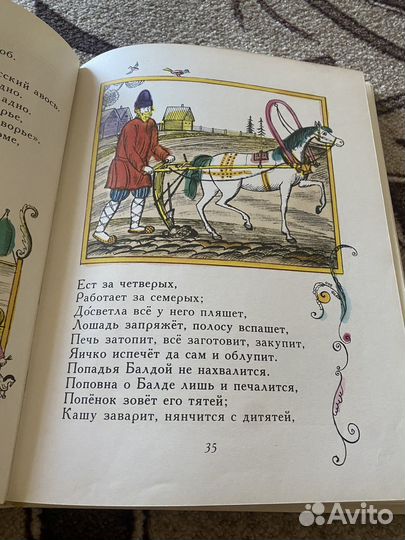 об.
сский авось.
дно.
адно.
рье,
ворье».
оме,
Ест за четверых,
Работает за семерых;
До́светла всё у него пляшет,
Лошадь запряжёт, полосу вспашет,
Печь затопит, всё заготовит, закупит,
Яичко испечёт да сам и облупит.
Попадья Балдой не нахвалится.
Поповна о Балде лишь и печалится,
Попёнок зовёт его тятей;
Кашу заварит, нянчится с дитятей,
35
Avito